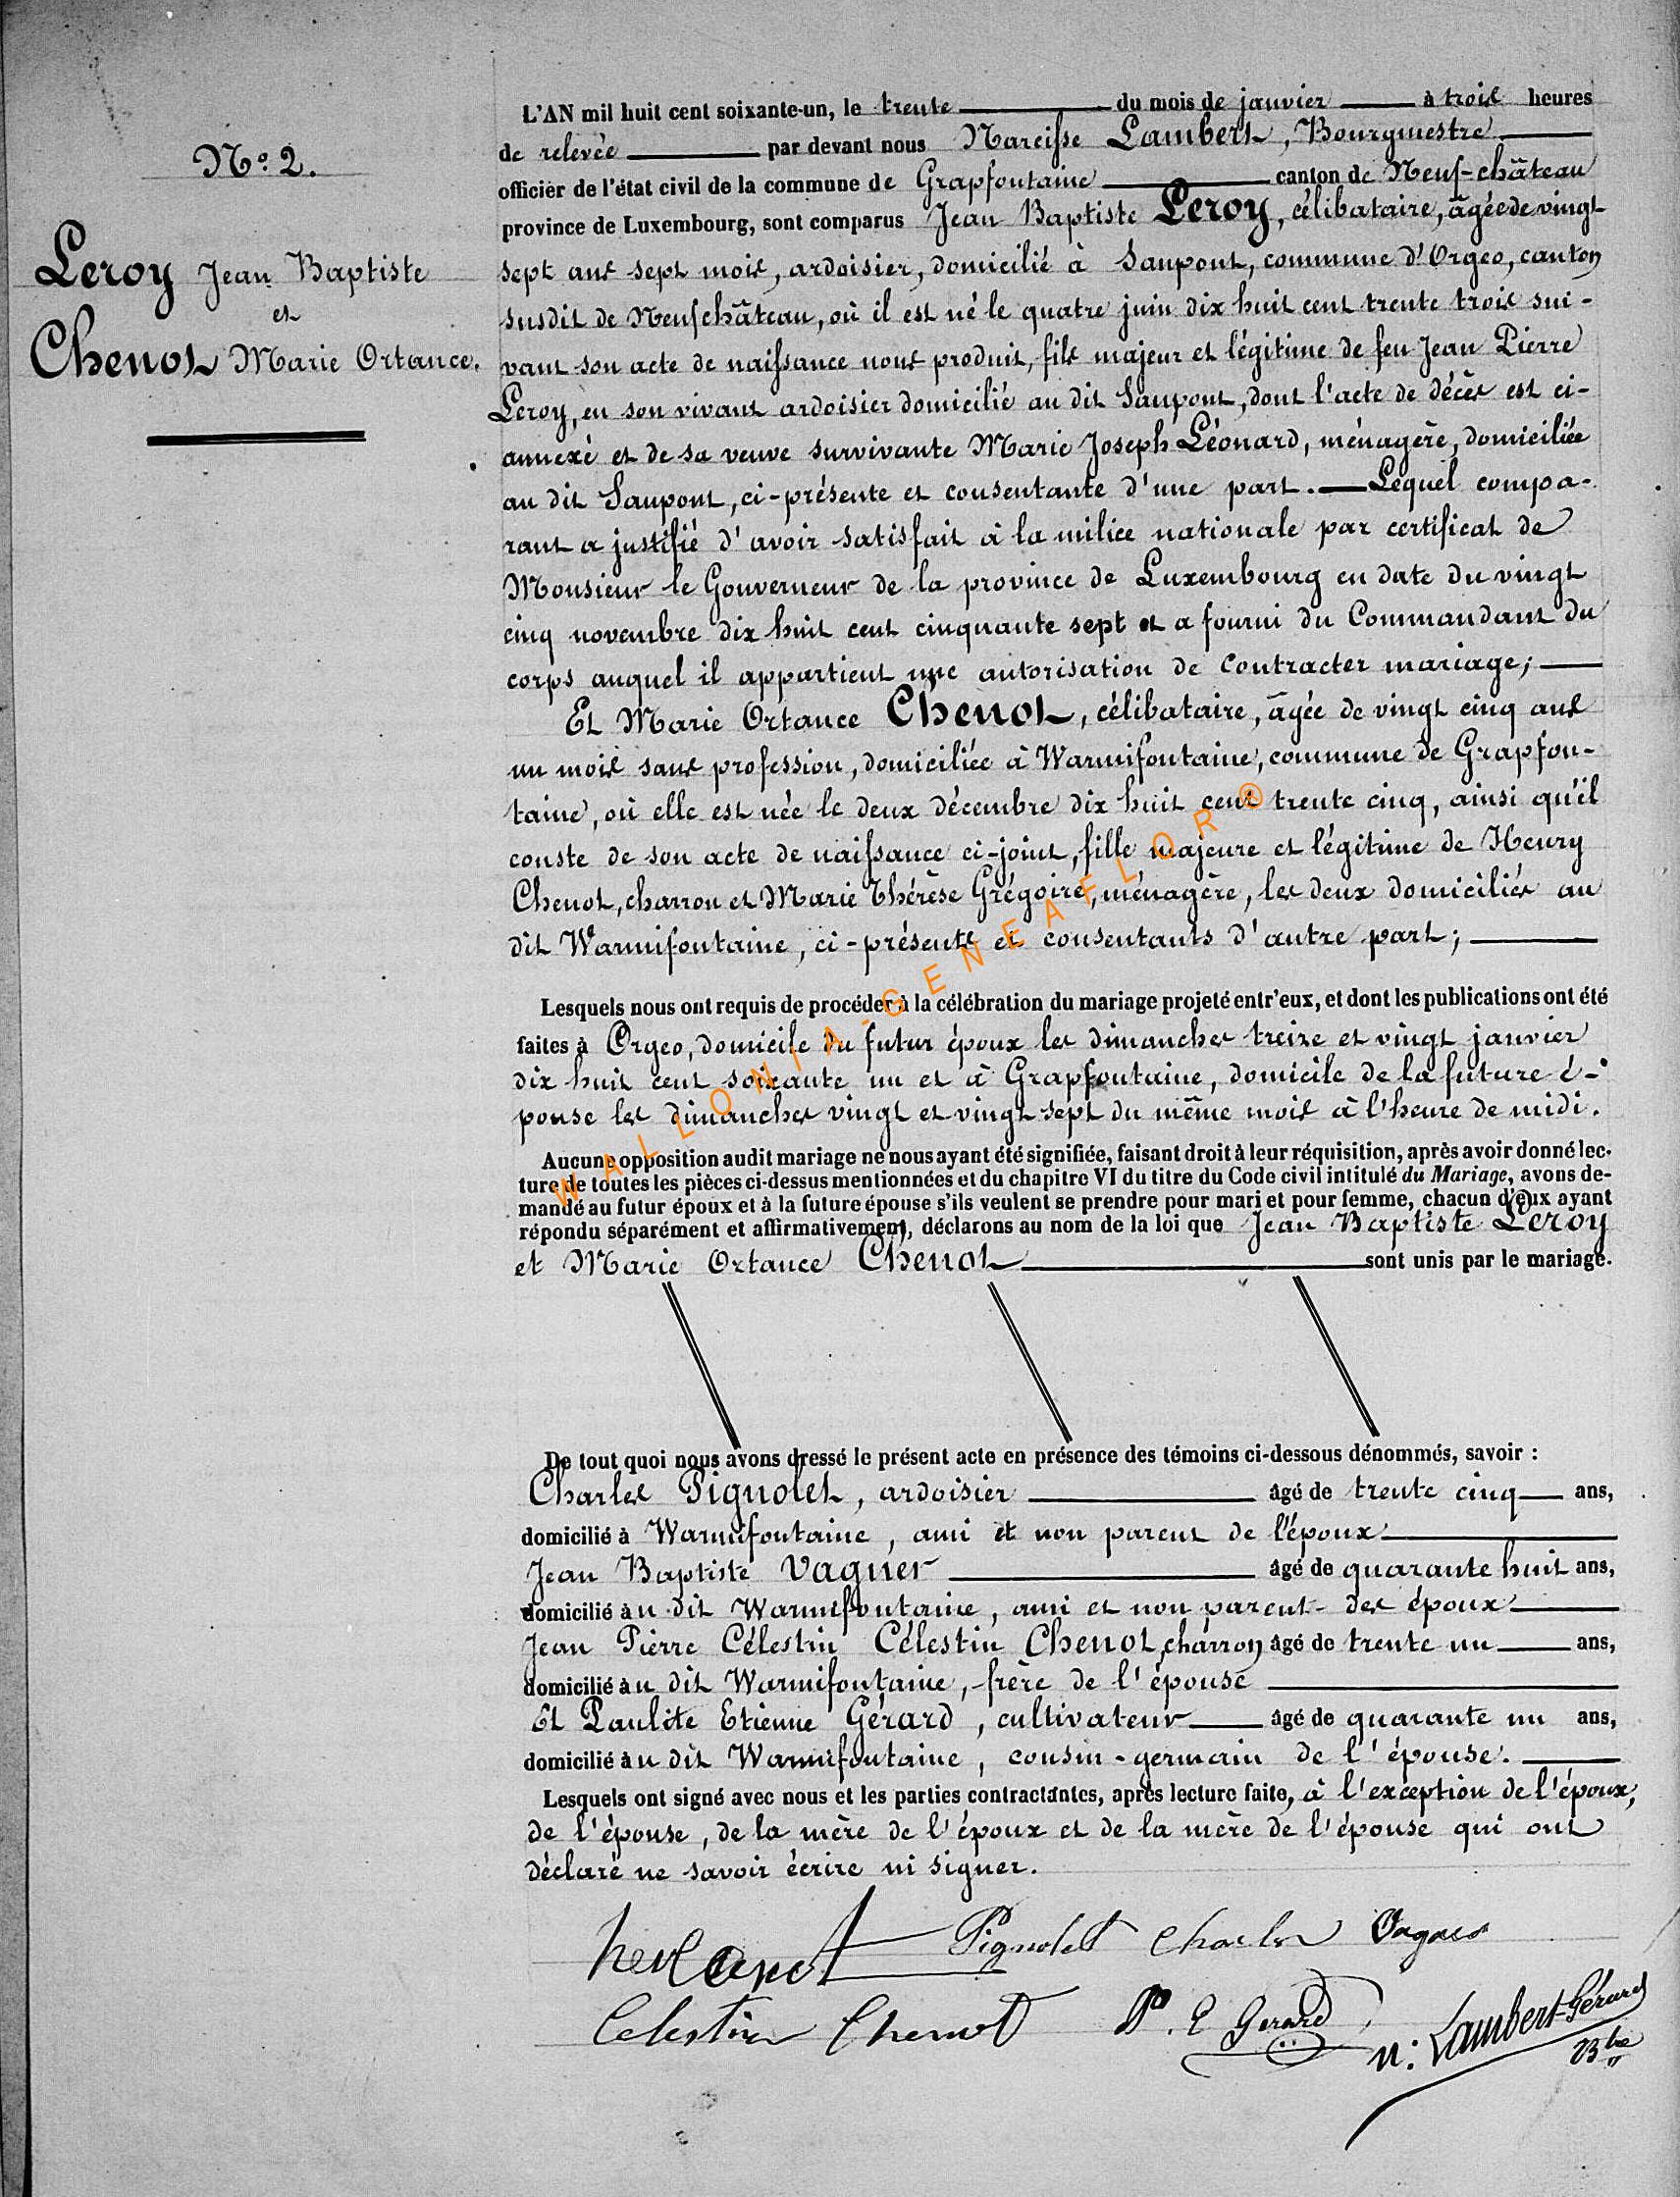 N.o 2.
Leroy Jean Baptiste
et
Chenot Marie Ortance.
L'AN mil huit cent soixante-un, le trente du mois de janvier à trois heures
de relevée par devant nous Narcisse Lambert, Bourgmestre
officier de l'état civil de la commune de Grapfontaine canton de Neuf-château
province de Luxembourg, sont comparus Jean Baptiste Leroy, célibataire, âgée de vingt
sept ans sept mois, ardoisier, domicilié à Saupont, commune d'Orgeo, canton
susdit de Neufchâteau, où il est né le quatre juin dix huit cent trente trois sui-
vant son acte de naissance nous produit, fils majeur et légitime de feu Jean Pierre
Leroy, en son vivant ardoisier domicilié au dit Saupont, dont l'acte de décès est ci-
annexé et de sa veuve survivante Marie Joseph Léonard, ménagère, domiciliée
au dit Saupont, ci-présente et consentante d'une part. Lequel compa-
rant a justifié d'avoir satisfait à la milice nationale par certificat de
Monsieur le Gouverneur de la province de Luxembourg en date du vingt
cinq novembre dix huit cent cinquante sept et a fourni du Commandant du
corps auquel il appartient une autorisation de contracter mariage;
Et Marie Ortance Chenot, célibataire, âgée de vingt cinq ans
un mois sans profession, domiciliée à Warmifontaine, commune de Grapfon-
taine, où elle est née le deux décembre dix huit cent trente cinq, ainsi qu'il
conste de son acte de naissance ci-joint, fille majeure et légitime de Henry
Chenot, charron et Marie Thérèse Grégoire, ménagère, les deux domiciliés au
dit Warmifontaine, ci-présents et consentants d'autre part;
Lesquels nous ont requis de procéder à la célébration du mariage projeté entr'eux, et dont les publications ont été
faites à Orgeo, domicile du futur époux les dimanches treize et vingt janvier
dix huit cent soixante un et à Grapfontaine, domicile de la future é-
pouse les dimanches vingt et vingt sept du même mois à l'heure de midi.
Aucune opposition audit mariage ne nous ayant été signifiée, faisant droit à leur réquisition, après avoir donné lec-
ture de toutes les pièces ci-dessus mentionnées et du chapitre VI du titre du Code civil intitulé du Mariage, avons de-
mandé au futur époux et à la future épouse s'ils veulent se prendre pour mari et pour femme, chacun d'eux ayant
répondu séparément et affirmativement, déclarons au nom de la loi que Jean Baptiste Leroy
et Marie Ortance Chenot sont unis par le mariage.
De tout quoi nous avons dressé le présent acte en présence des témoins ci-dessous dénommés, savoir :
Charles Pignolet, ardoisier âgé de trente cinq ans,
domicilié à Warmifontaine, ami et non parent de l'époux
Jean Baptiste Vagner âgé de quarante huit ans,
domicilié au dit Warmifontaine, ami et non parent des époux
Jean Pierre Célestin Célestin Chenot, charron âgé de trente un ans,
domicilié au dit Warmifontaine, frère de l'épouse
Et Paulite Etienne Gérard, cultivateur âgé de quarante un ans,
domicilié au dit Warmifontaine, cousin-germain de l'épouse.
Lesquels ont signé avec nous et les parties contractantes, après lecture faite, à l'exception de l'époux,
de l'épouse, de la mère de l'époux et de la mère de l'épouse qui ont
déclaré ne savoir écrire ni signer.
Pignolet Charles Vagner
Celestin Chenot P. E Gerard N: Lambert-Gérard
Btre
WALLONIA-GENEAFLOR®